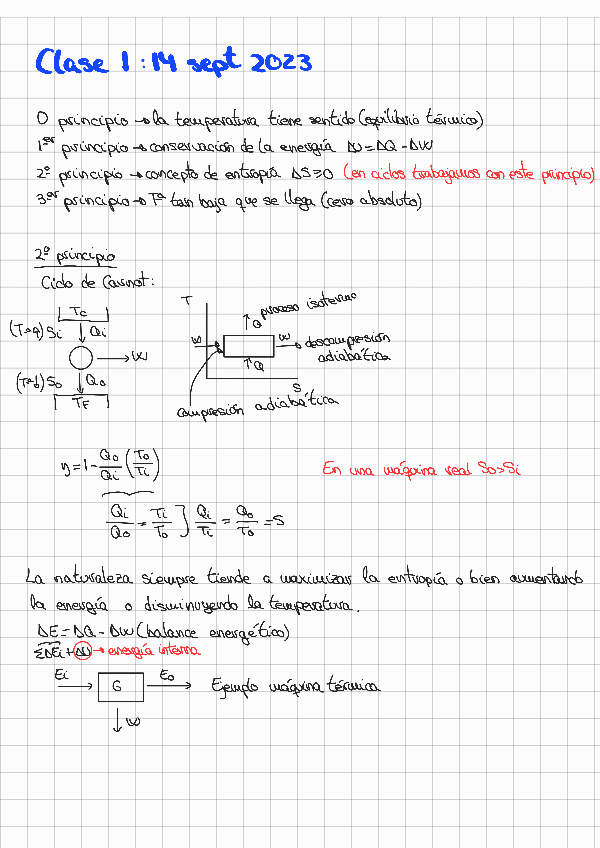 Clase 1 : 14 sept 2023
0 principio → la temperatura tiene sentido (equilibrio térmico)
1er principio → conservación de la energía ΔU = ΔQ - ΔW
2º principio → concepto de entropía ΔS≥0 (en ciclos trabajamos con este principio)
3er principio → Tª tan baja que se llega (cero absoluto)
2º principio
Ciclo de Carnot:
Tc
(T→a) Si Qi
→ W
(T→b) So Qo
TF
T
proceso isotermo
Q
W
W
descompresión
adiabática
Q
S
compresión adiabática
η = 1 - Qo/Qi (To/Ti)
En una máquina real So>Si
Qi/Qo = Ti/To ] Qi/Ti = Qo/To = S
La naturaleza siempre tiende a maximizar la entropía o bien aumentando
la energía o disminuyendo la temperatura.
ΔE = ΔQ - ΔW (balance energético)
ΣΔEi + ΔU → energía interna
Ei
G
Eo
Ejemplo máquina térmica
W